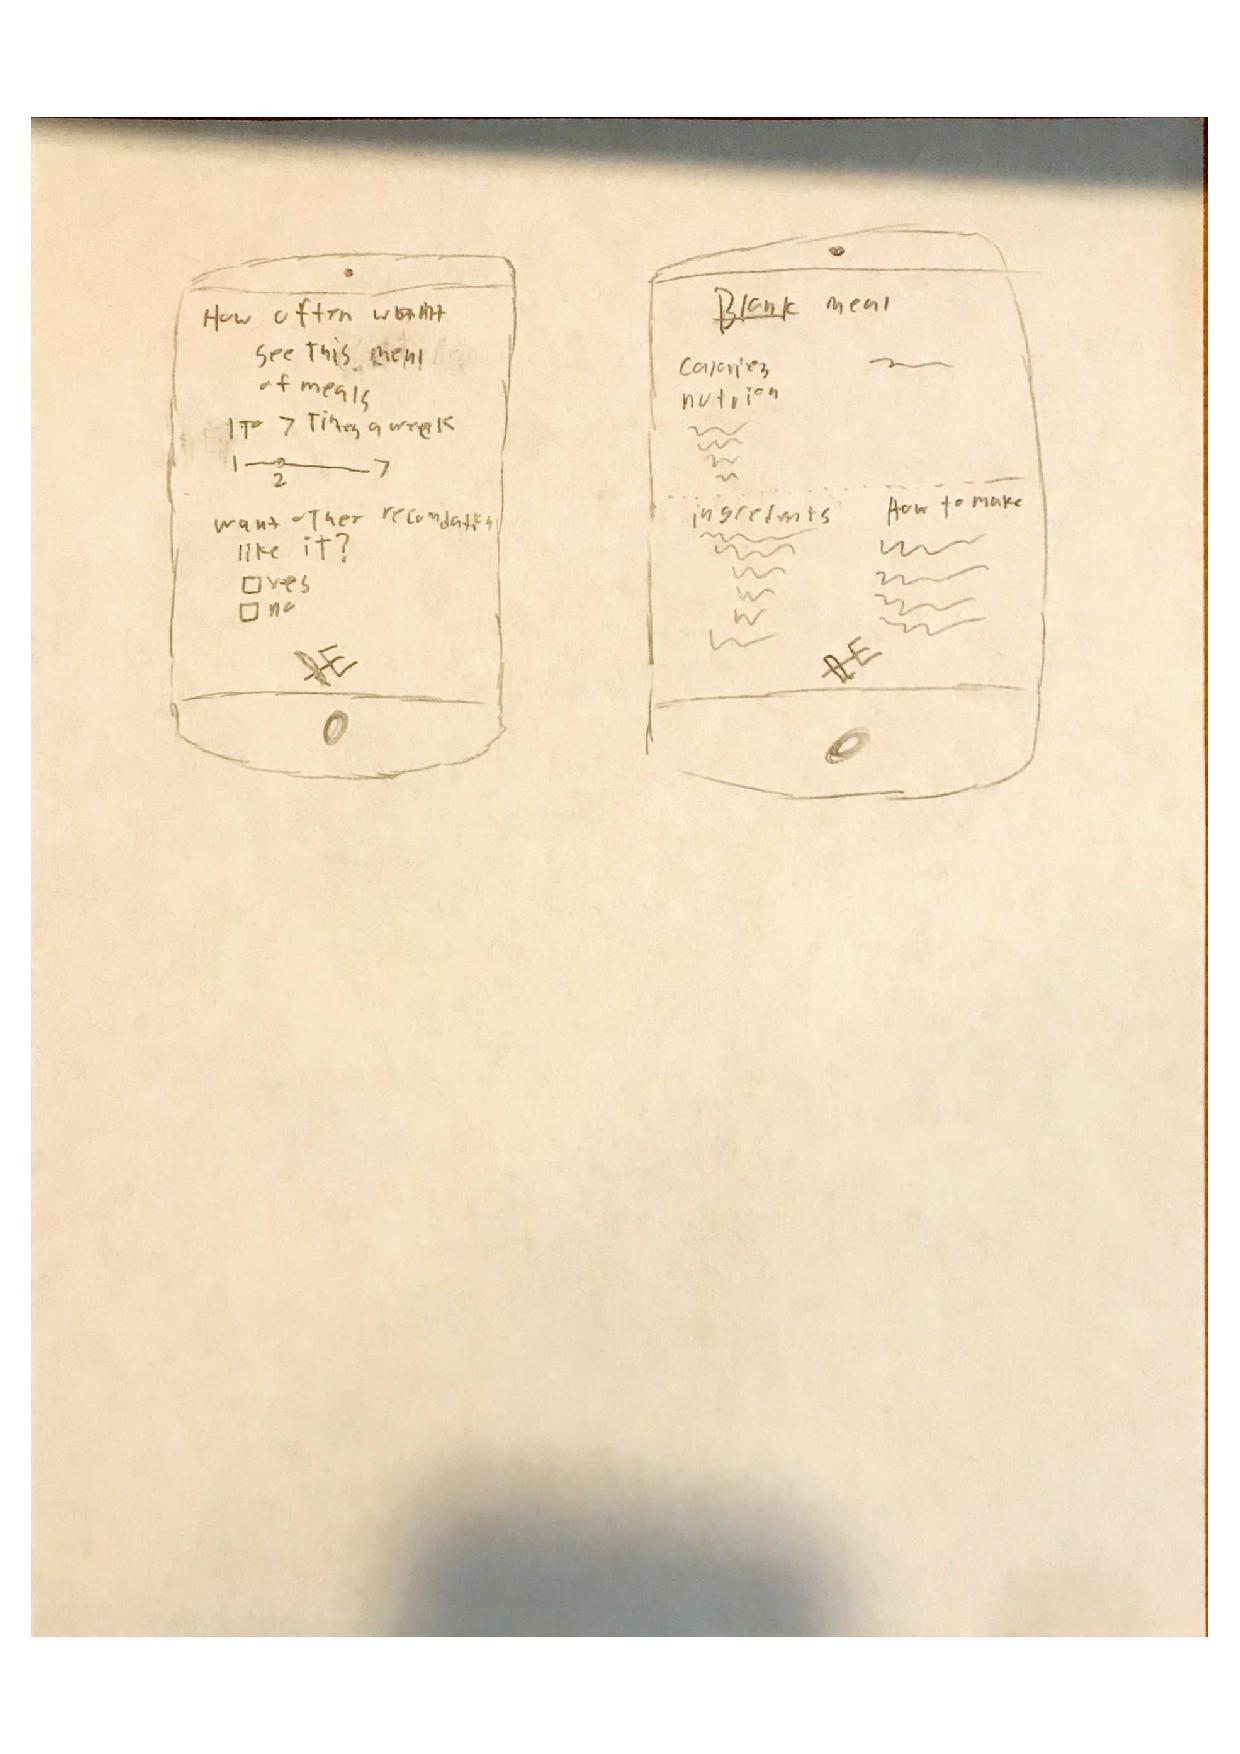 How often want
see this meal
of meals
1 to 7 Times a week
1 7
2
want other recomdation
like it?
yes
no
Blank meal
Calories
nutrion
ingredints How to make